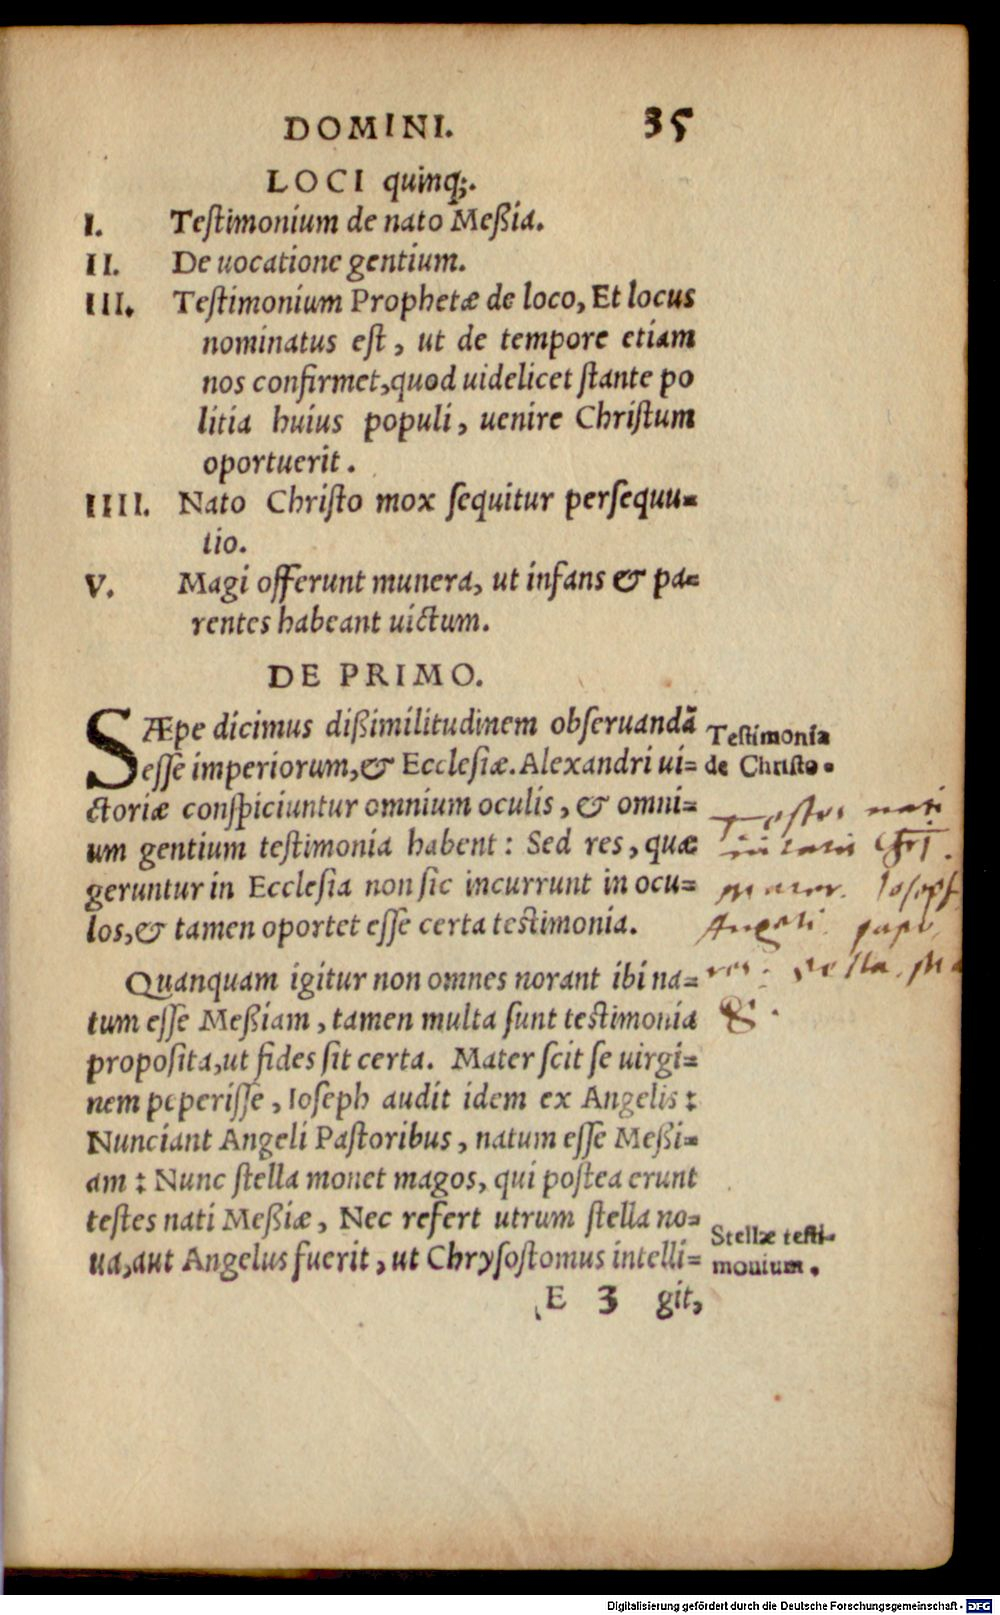 DOMINI. 35
LOCI quinq;.
I. Testimonium de nato Meßia.
II. De uocatione gentium.
III. Testimonium Prophetæ de loco, Et locus
nominatus est, ut de tempore etiam
nos confirmet, quod uidelicet stante po
litia huius populi, uenire Christum
oportuerit.
IIII. Nato Christo mox sequitur persequu-
tio.
V. Magi offerunt munera, ut infans & pa-
rentes habeant uictum.
DE PRIMO.
SÆpe dicimus dißimilitudinem obseruandā
esse imperiorum, & Ecclesiæ. Alexandri ui-
ctoriæ conspiciuntur omnium oculis, & omni-
um gentium testimonia habent: Sed res, quæ
geruntur in Ecclesia non sic incurrunt in ocu-
los, & tamen oportet esse certa testimonia.
Testimonia
de Christo.
mater. Joseph
Angeli.
stella. Ma
Quanquam igitur non omnes norant ibi na-
tum esse Meßiam, tamen multa sunt testimonia
proposita, ut fides sit certa. Mater scit se uirgi-
nem peperisse, Ioseph audit idem ex Angelis:
Nunciant Angeli Pastoribus, natum esse Meßi-
am: Nunc stella monet magos, qui postea erunt
testes nati Meßiæ, Nec refert utrum stella no-
ua, aut Angelus fuerit, ut Chrysostomus intelli-
Stellæ testi-
monium.
E 3 git,
Digitalisierung gefördert durch die Deutsche Forschungsgemeinschaft - DFG